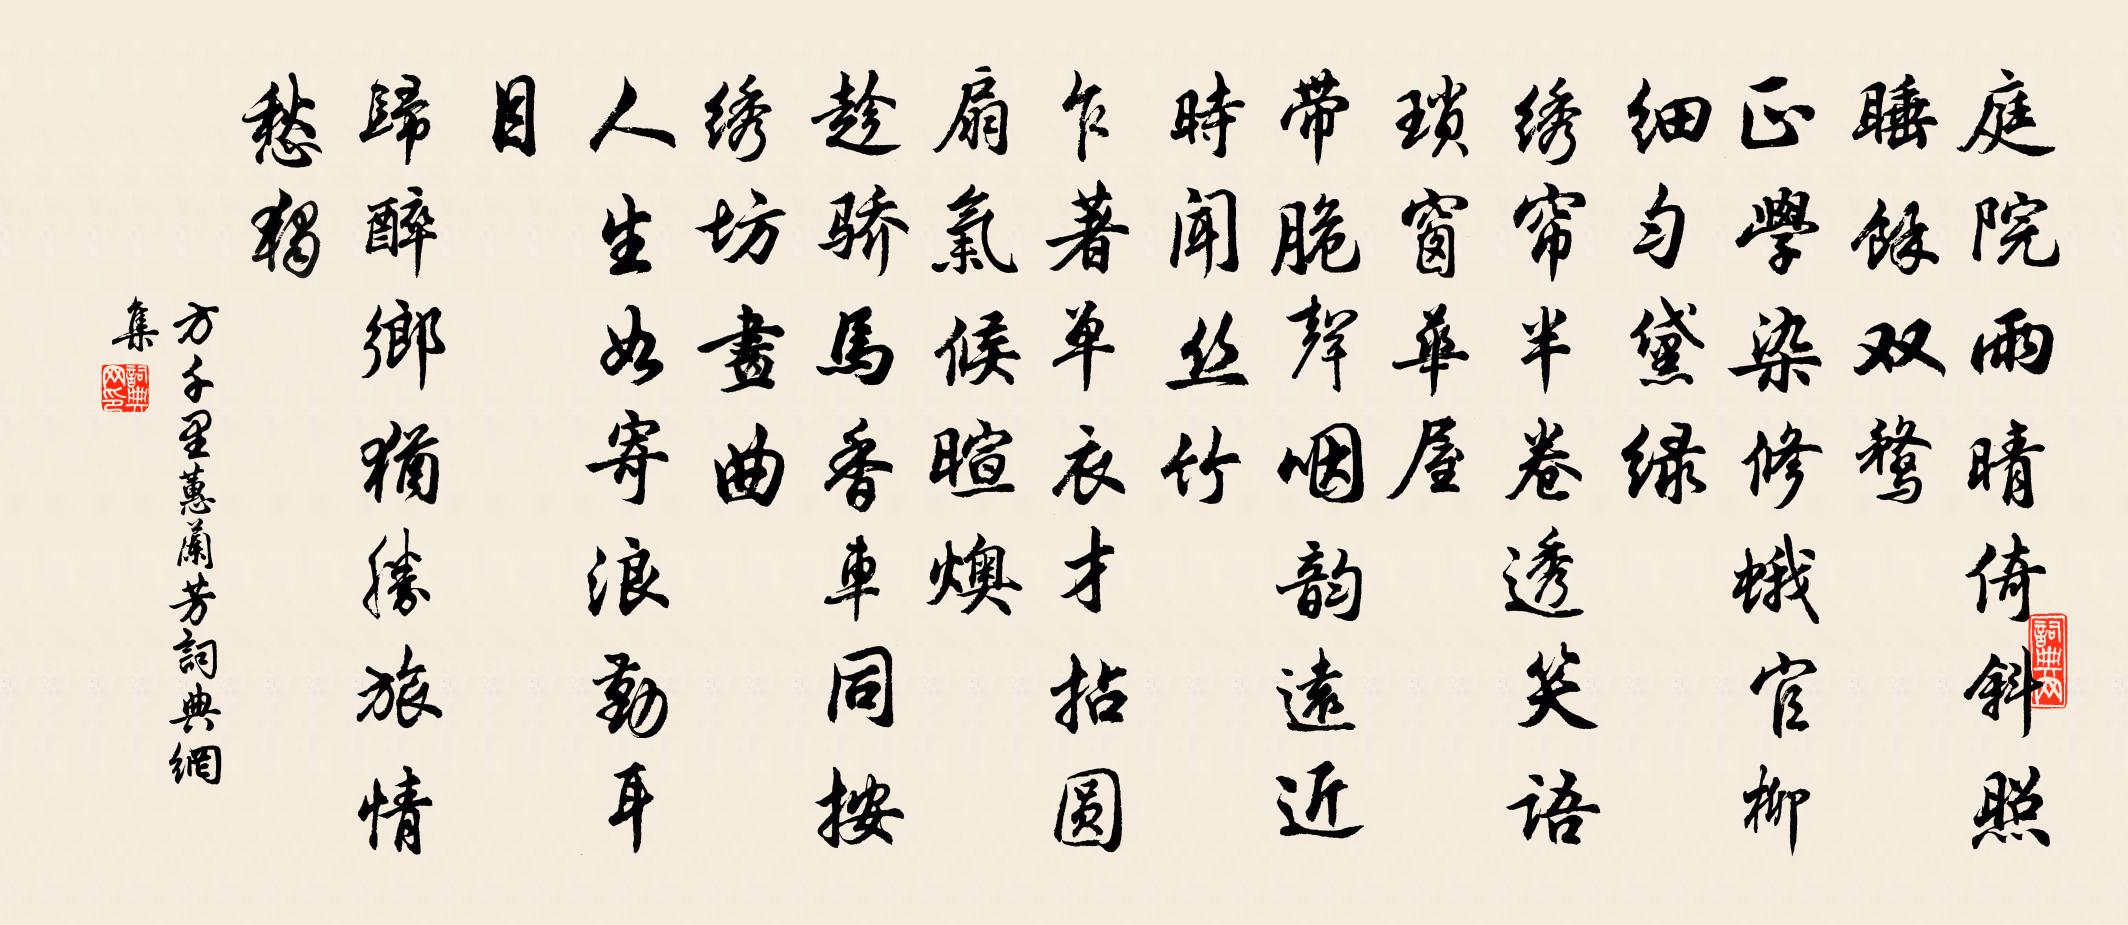 庭院雨晴倚斜照
睡餘双鹜
正學染修蛾官柳
细匀黛绿
绣帘半卷透笑语
琐窗華屋
带脆聲咽韵遠近
時闻丝竹
乍著单衣才拈圆
扇氣候暄燠
趁骄馬香車同按
绣坊畫曲
人生如寄浪勤耳
目
歸醉鄉猶勝旅情
愁獨
方千里蕙蘭芳詞典網
集
詞典网印
詞典网